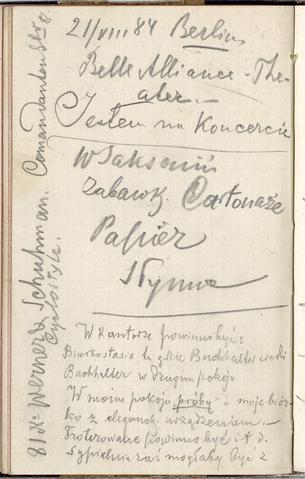 21/VIII 84 Berlin
Belle Alliance-The-
ater.—
Jestem na Koncercie
W Saksonii
zabawk. Cartonaże
Papier
słynne
W Kantorze powinno być:
Biurko Stasia tu gdzie Buchhalter
Buchhalter w drugim pokoju
W moim pokoju „próby" i moje biur-
ko z eleganck. urządzeniem.—
Froterowane powinno być i t. d.
Sypialnia zaś mogłaby być z
Werner & Schuhman. Comandanten Str
Cyclostyle.